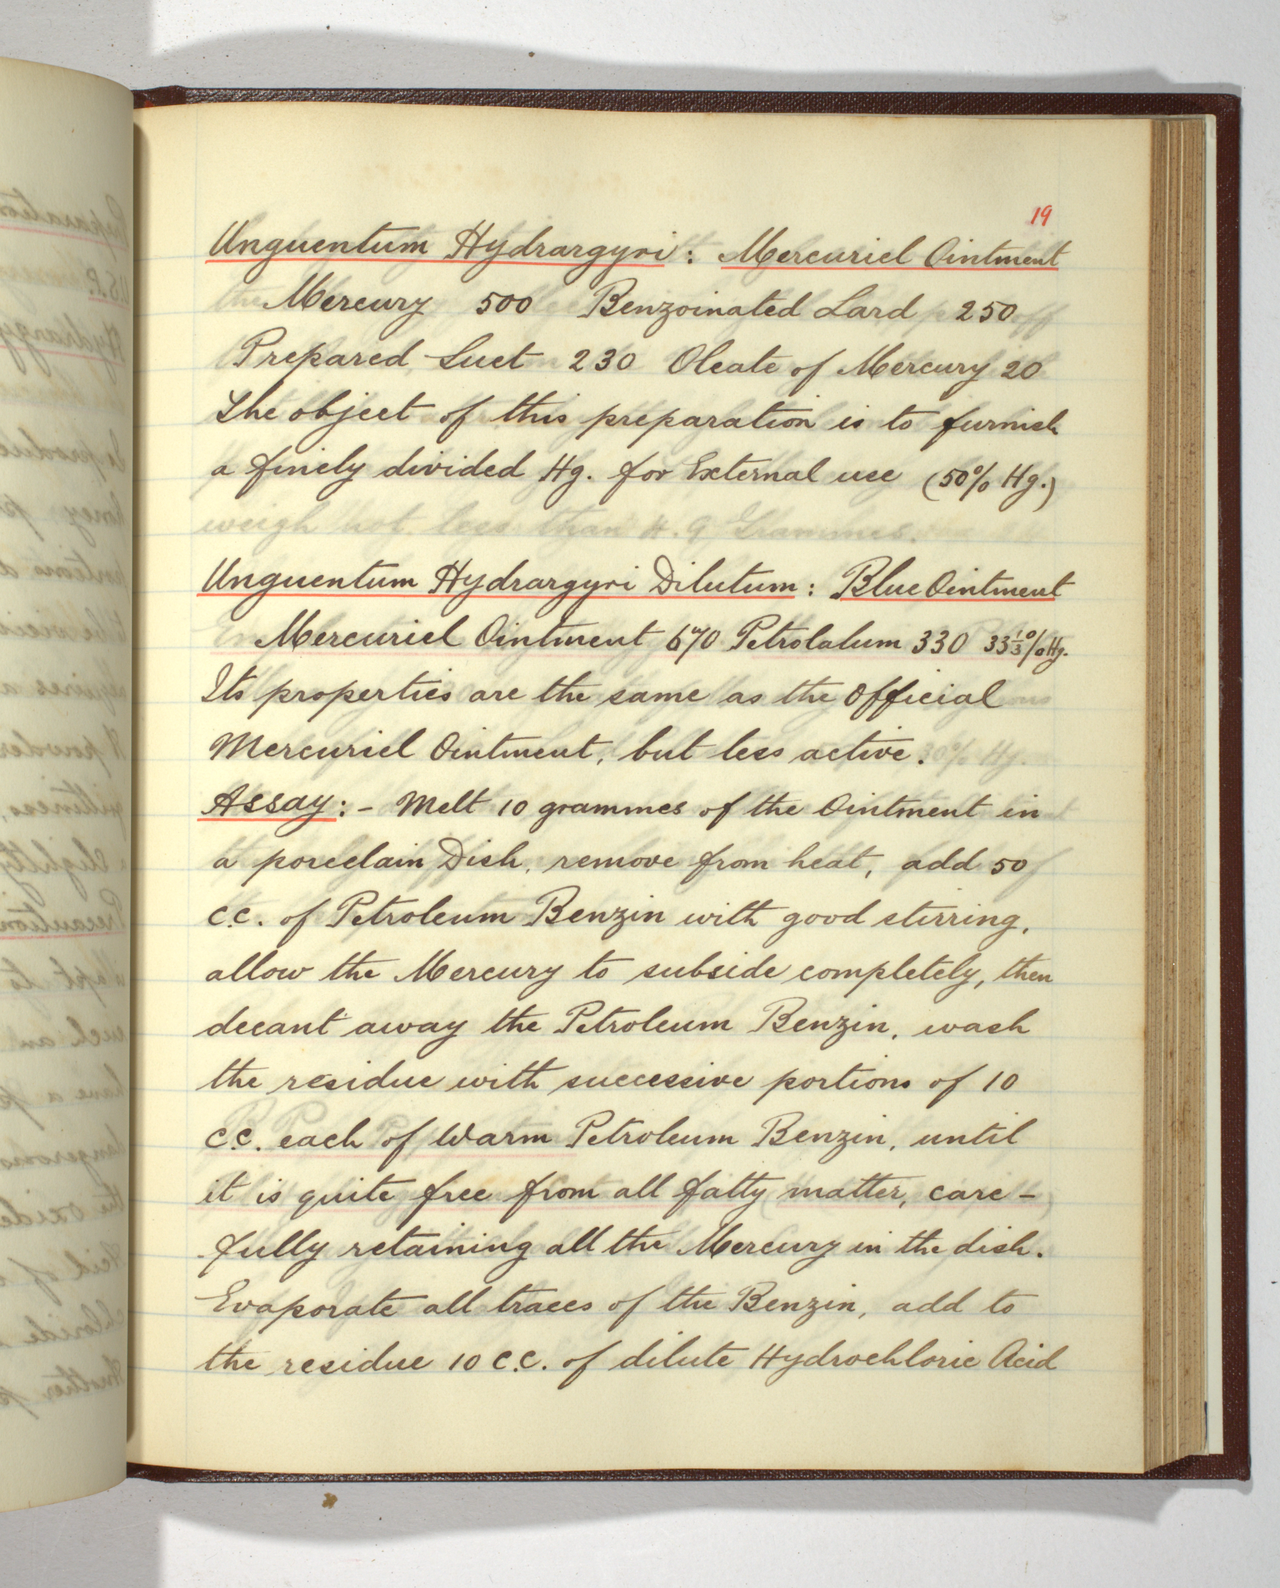 19
Unguentum Hydrargyri: Mercuriel Ointment
Mercury 500 Benzoinated Lard 250
Prepared Suet 230 Oleate of Mercury 20
The object of this preparation is to furnish
a finely divided Hg. for External use (50% Hg.)
weigh not less than 4.9 Grammes.
Unguentum Hydrargyri Dilutum: Blue Ointment
Mercuriel Ointment 670 Petrolatum 330 33⅓% Hg.
Its properties are the same as the Official
Mercuriel Ointment, but less active.
Assay:- Melt 10 grammes of the Ointment in
a porcelain Dish, remove from heat, add 50
c.c. of Petroleum Benzin with good stirring,
allow the Mercury to subside completely, then
decant away the Petroleum Benzin, wash
the residue with successive portions of 10
c.c. each of Warm Petroleum Benzin, until
it is quite free from all fatty matter, care-
fully retaining all the Mercury in the dish.
Evaporate all traces of the Benzin, add to
the residue 10 c.c. of dilute Hydrochloric Acid